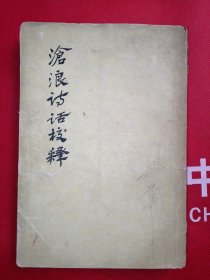 滄浪诗话校釋
中
CH